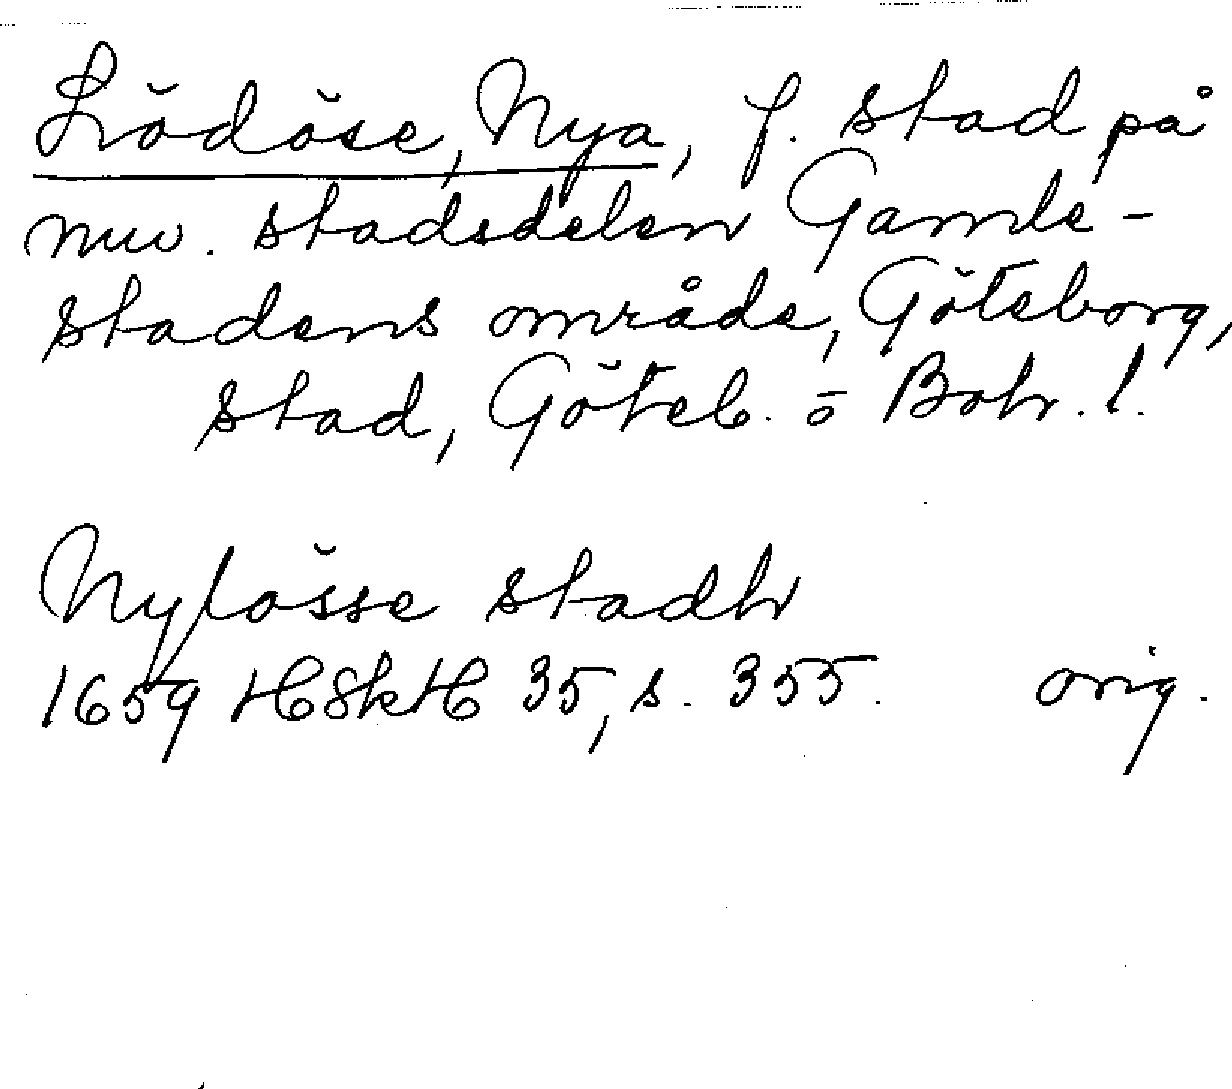 Lödöse, Nya, f. stad på
nuv. stadsdelen Gamle-
stadens område, Göteborg,
stad, Göteb. o Boh. l.
Nylösse stadh
1659 HSkH 35, s. 355. orig.